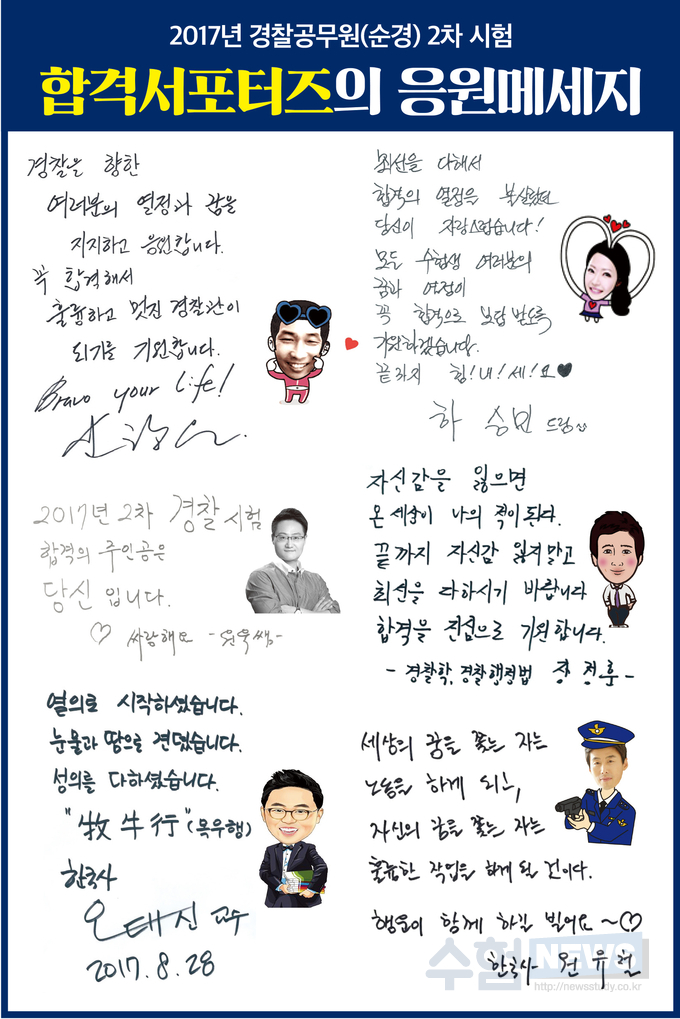 2017년 경찰공무원(순경) 2차 시험
합격서포터즈의 응원메세지
경찰을 향한
여러분의 열정과 꿈을
지지하고 응원합니다.
꼭 합격해서
훌륭하고 멋진 경찰관이
되기를 기원합니다.
Bravo your Life!
최선을 다해서
합격의 열정을 불살랐던
당신이 자랑스럽습니다!
모든 수험생 여러분의
꿈과 열정이
꼭 합격으로 보답 받도록
기원하겠습니다.
끝까지 힘!내!세!요♥
하승민 드림
2017년 2차 경찰시험
합격의 주인공은
당신입니다.
♡ 싸랑해요 -원욱쌤-
자신감을 잃으면
온 세상이 나의 적이 된다.
끝까지 자신감 잃지말고
최선을 다하시기 바랍니다
합격을 진심으로 기원합니다.
- 경찰학, 경찰행정법 장정훈 -
열의로 시작하셨습니다.
눈물과 땀으로 견뎠습니다.
성의를 다하셨습니다.
"牧牛行"(목우행)
한국사
오태진 교수
2017. 8. 28
세상의 꿈을 쫓는 자는
노동을 하게 되고,
자신의 꿈을 쫓는 자는
훌륭한 작업을 하게 될 것이다.
행운이 함께 하길 빌어요~♡
한국사 원유철
수험NEWS
http://newsstudy.co.kr